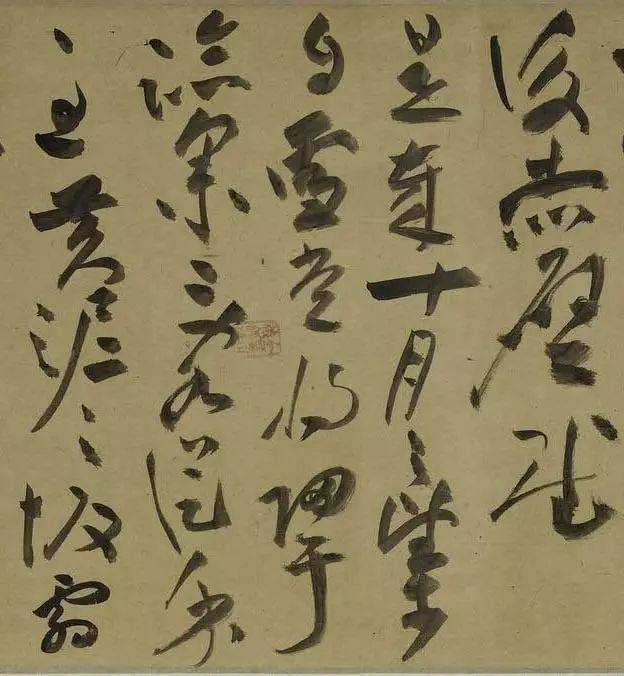 後赤壁賦
是歲十月之望步
自雪堂將歸于
臨皋二客從余
過黃泥之坂霜